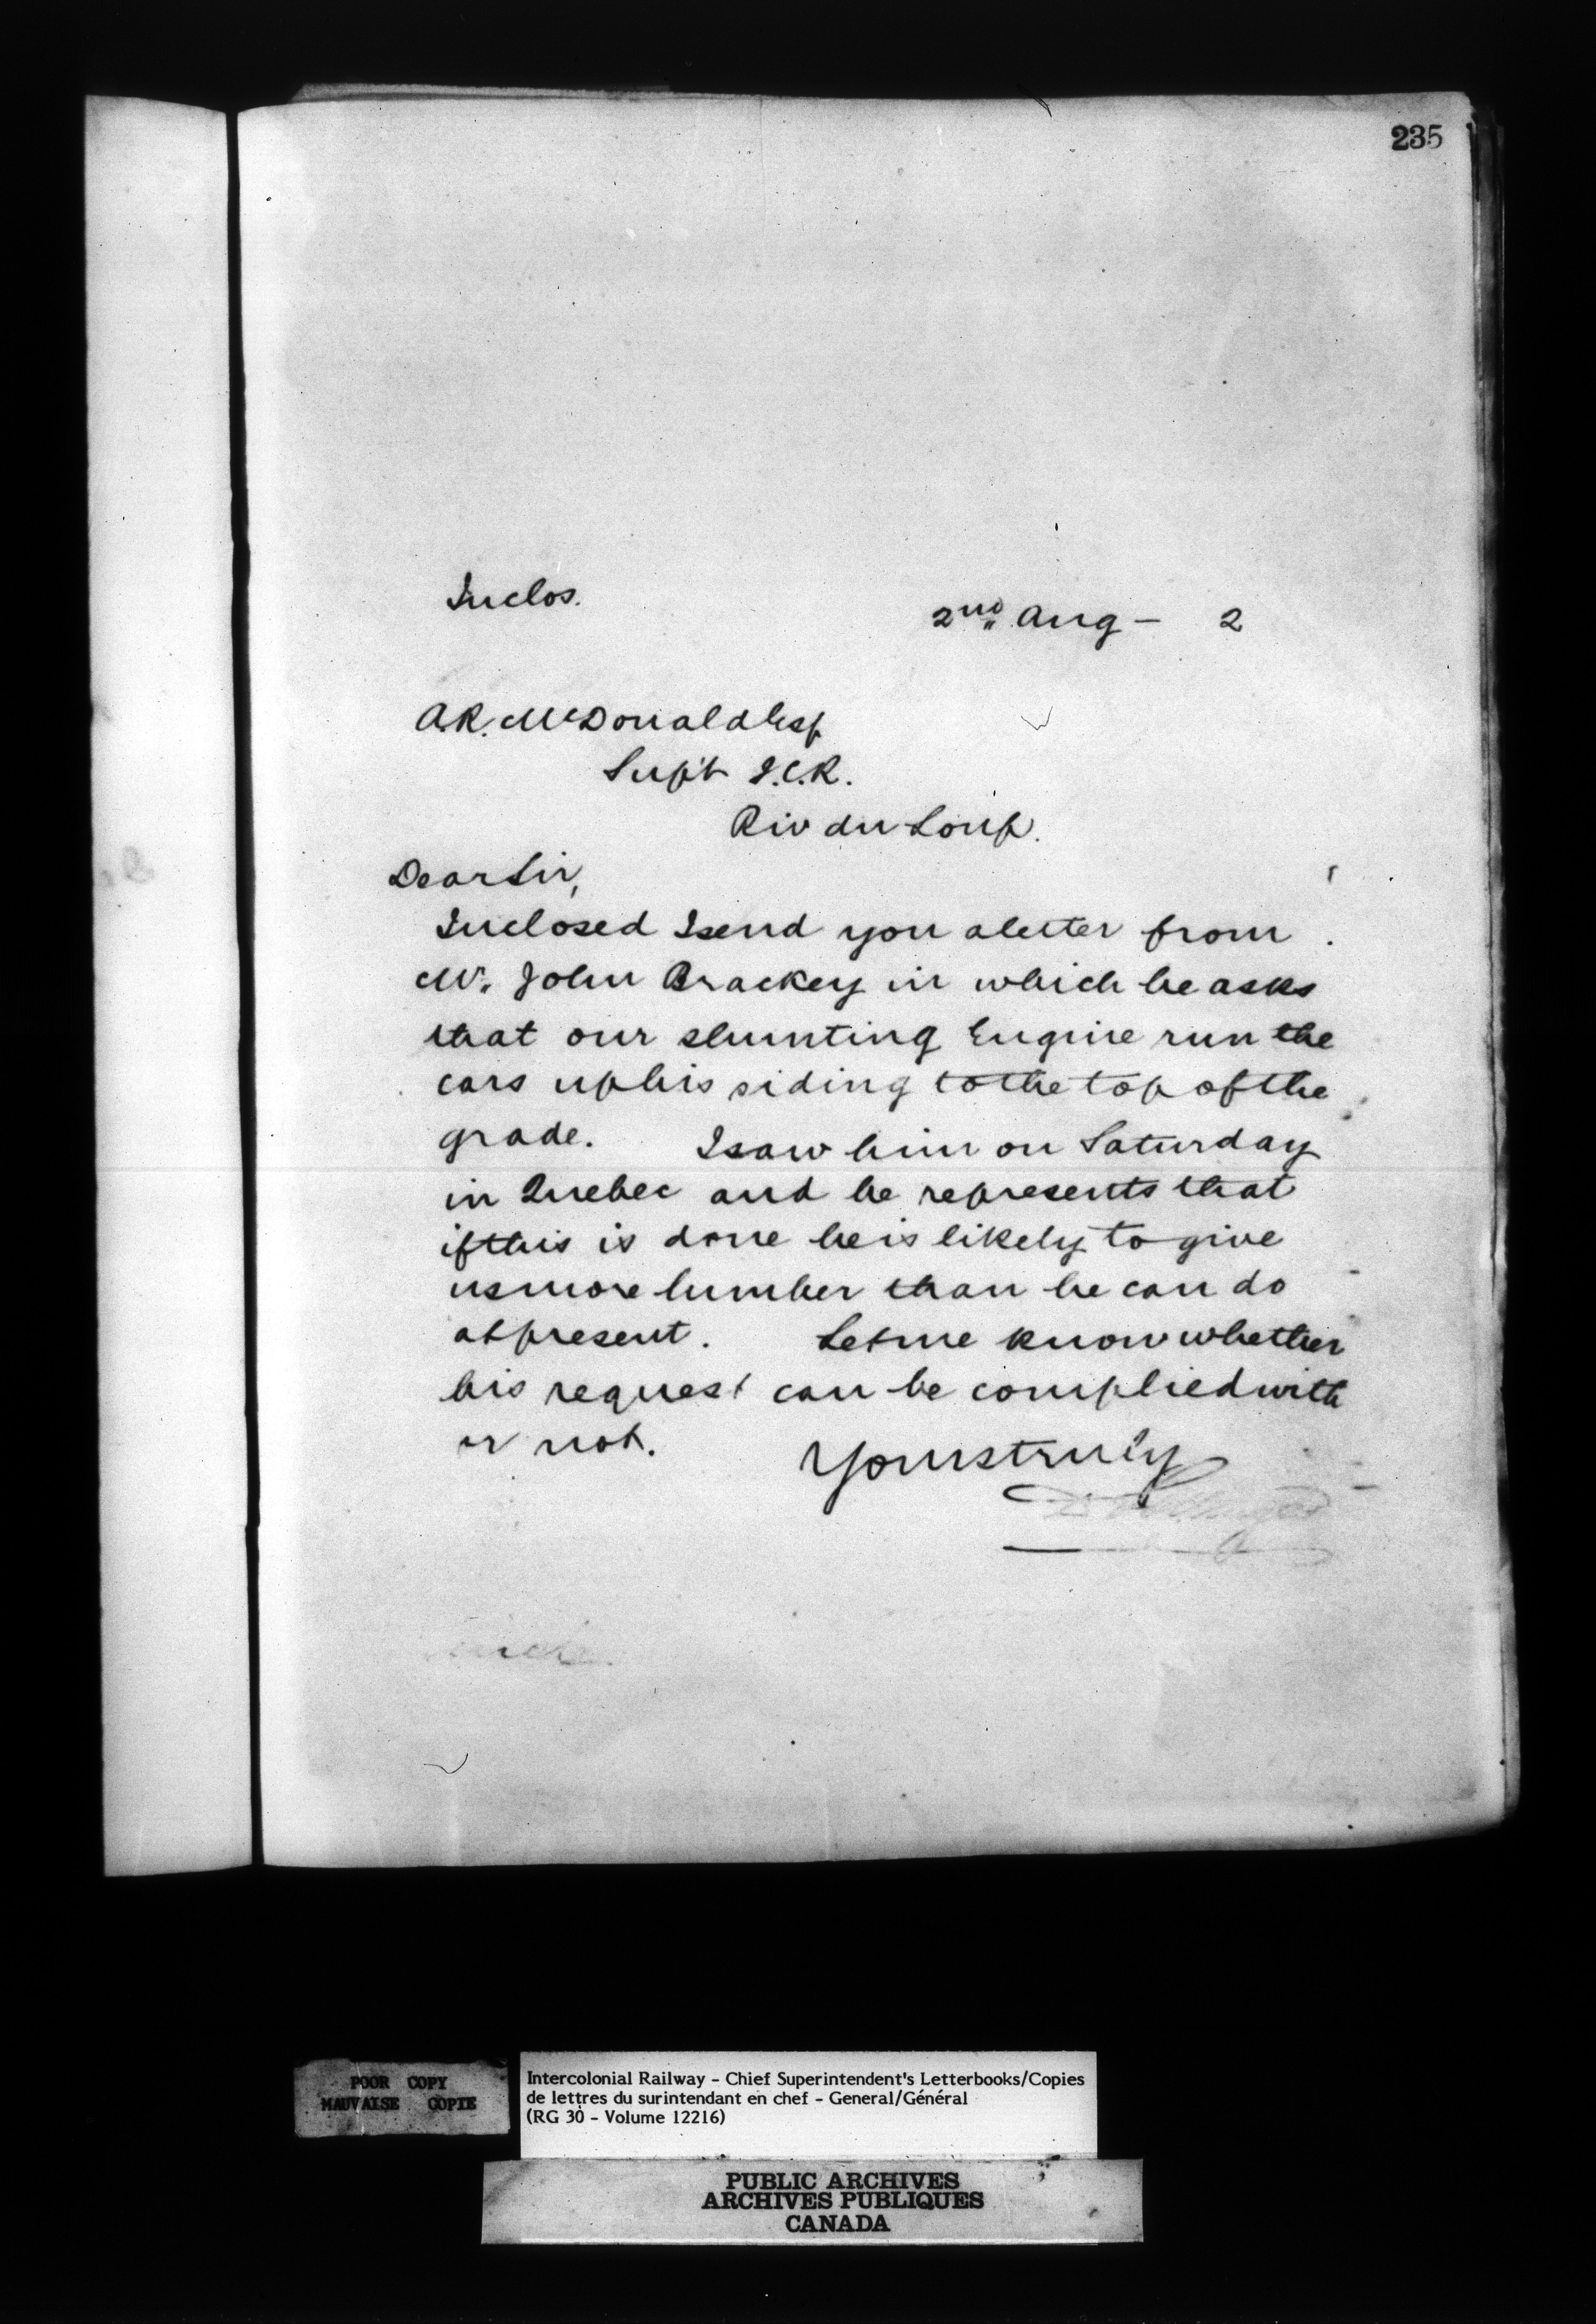 235
Inclos.
2nd Aug - 2
A.R. McDonald Esq
Supt I.C.R.
Riv du Loup.
Dear Sir,
Inclosed I send you a letter from
Mr. John Brackey in which he asks
that our shunting Engine run the
cars up his siding to the top of the
grade. I saw him on Saturday
in Quebec and he represents that
if this is done he is likely to give
us more lumber than he can do
at present. Let me know whether
his request can be complied with
or not.
Yours truly
POOR COPY
MAUVAISE COPIE
Intercolonial Railway - Chief Superintendent's Letterbooks/Copies
de lettres du surintendant en chef - General/Général
(RG 30 - Volume 12216)
PUBLIC ARCHIVES
ARCHIVES PUBLIQUES
CANADA